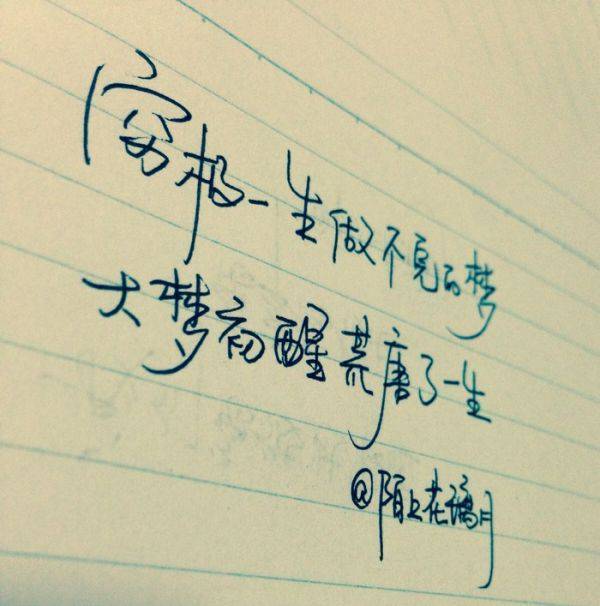 穷极一生做不完的梦
大梦初醒荒唐了一生
@陌上花璃月